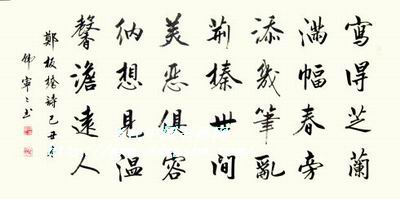 寫得芝蘭
滿幅春旁
添幾筆亂
荊榛世間
美惡俱容
納想見溫
馨澹遠人
鄭板橋詩己丑